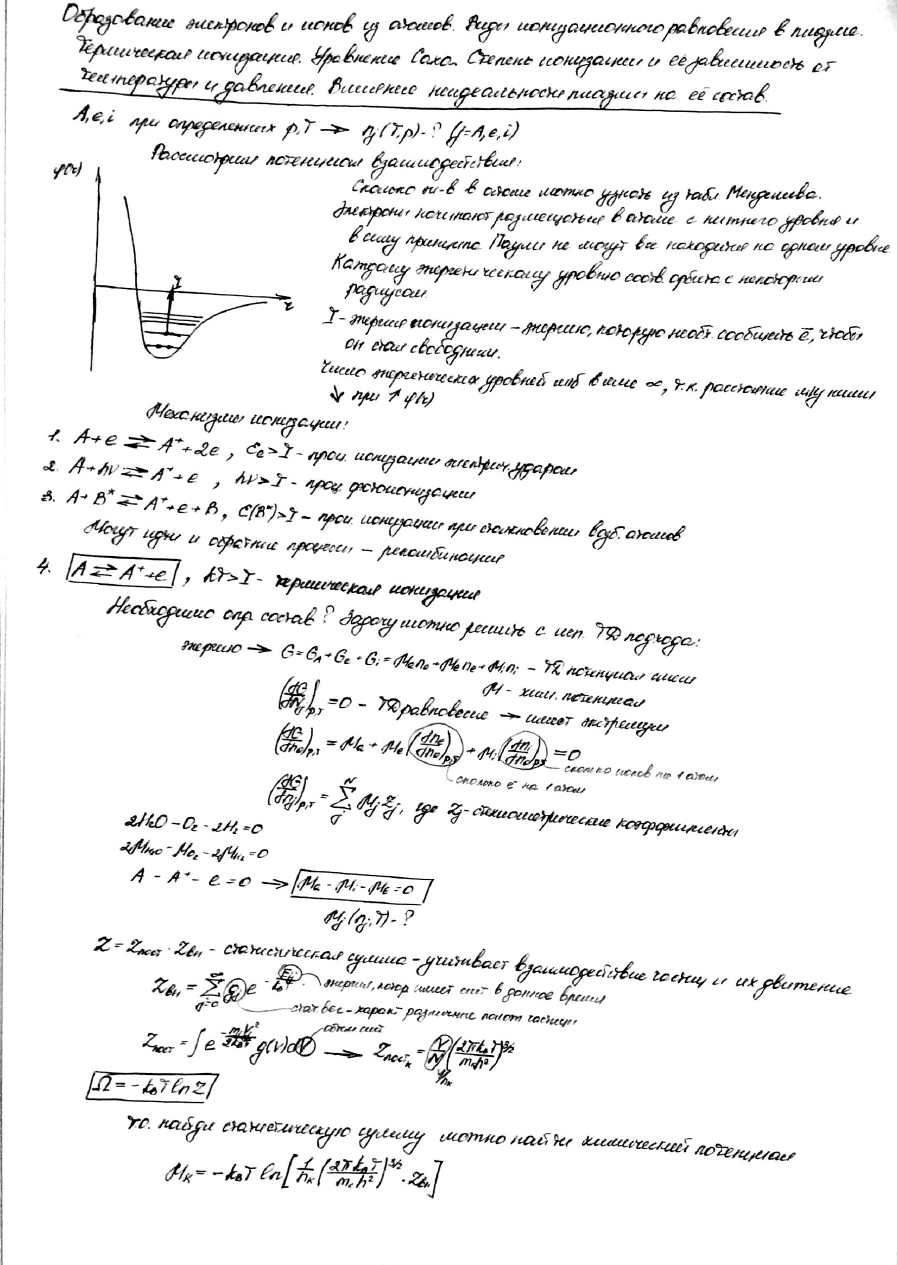 Образование электронов и ионов из атомов. Виды ионизационного равновесия в плазме.
Термическая ионизация. Уравнение Саха. Степень ионизации и её зависимость от
температуры и давления. Влияние неидеальности плазмы на её состав.
A, e, i при определенных p, T → nj(T,p)-? (j=A,e,i)
Рассмотрим потенциал взаимодействия:
φ(r)
Сколько эл-в в атоме можно узнать из табл Менделеева.
Электроны начинают размещаться в атоме с нижнего уровня и
в силу принципа Паули не могут все находиться на одном уровне
Каждому энергетическому уровню соотв. орбита с некоторым
радиусом.
I
r
I - энергия ионизации - энергию, которую необх. сообщить ē, чтобы
он стал свободным.
Число энергетических уровней ∞, т.к. расстояние между ними
↓ при ↑ φ(r)
Механизмы ионизации:
1. A+e ⇄ A⁺+2e, εe>I - проц. ионизации электрич. ударом
2. A+hν ⇄ A⁺+e, hν>I - проц фотоионизации
3. A+B* ⇄ A⁺+e+B, ε(B*)>I - проц. ионизации при столкновении возб. атомов
Могут идти и обратные процессы - рекомбинация
4. A ⇄ A⁺+e, kT>I - термическая ионизация
Необходимо опр состав? Задачу можно решить с исп. ТД подхода:
энергию → G = GA+Ge+Gi = μana+μene+μini - ТД потенциал смеси
μ - хим. потенциал
(dG/dnj)p,T = 0 - ТД равновесие → имеет экстремум
(dG/dna)p,T = μa + μe (dne/dna)p,T + μi (dni/dna)p,T = 0
сколько ионов на 1 атом
сколько ē на 1 атом
(dG/dnj)p,T = Σ μj zj, где zj - стехиометрические коэффициенты
2H2O - O2 - 2H2 = 0
2μH2O - μO2 - 2μH2 = 0
A - A⁺ - e = 0 → μa - μi - μe = 0
μj(nj,T)-?
Z = Zпост · Zвн - статистическая сумма - учитывает взаимодействие частиц и их движение
Zвн = Σ gj e^(-Ej/kБT) энергия, котор имеет сист в данное время
стат вес - характ различные полож частицы
Zпост = ∫ e^(-mkV²/2kБT) g(v)dV → Zпостk = V/N (2πkБT/mkh²)^3/2
объем сист
1/nk
Ω = -kБT ln Z
т.о. найдя статистическую сумму можно найти химический потенциал
μk = -kБT ln[1/nk (2πkБT/mkh²)^3/2 · Zвн]